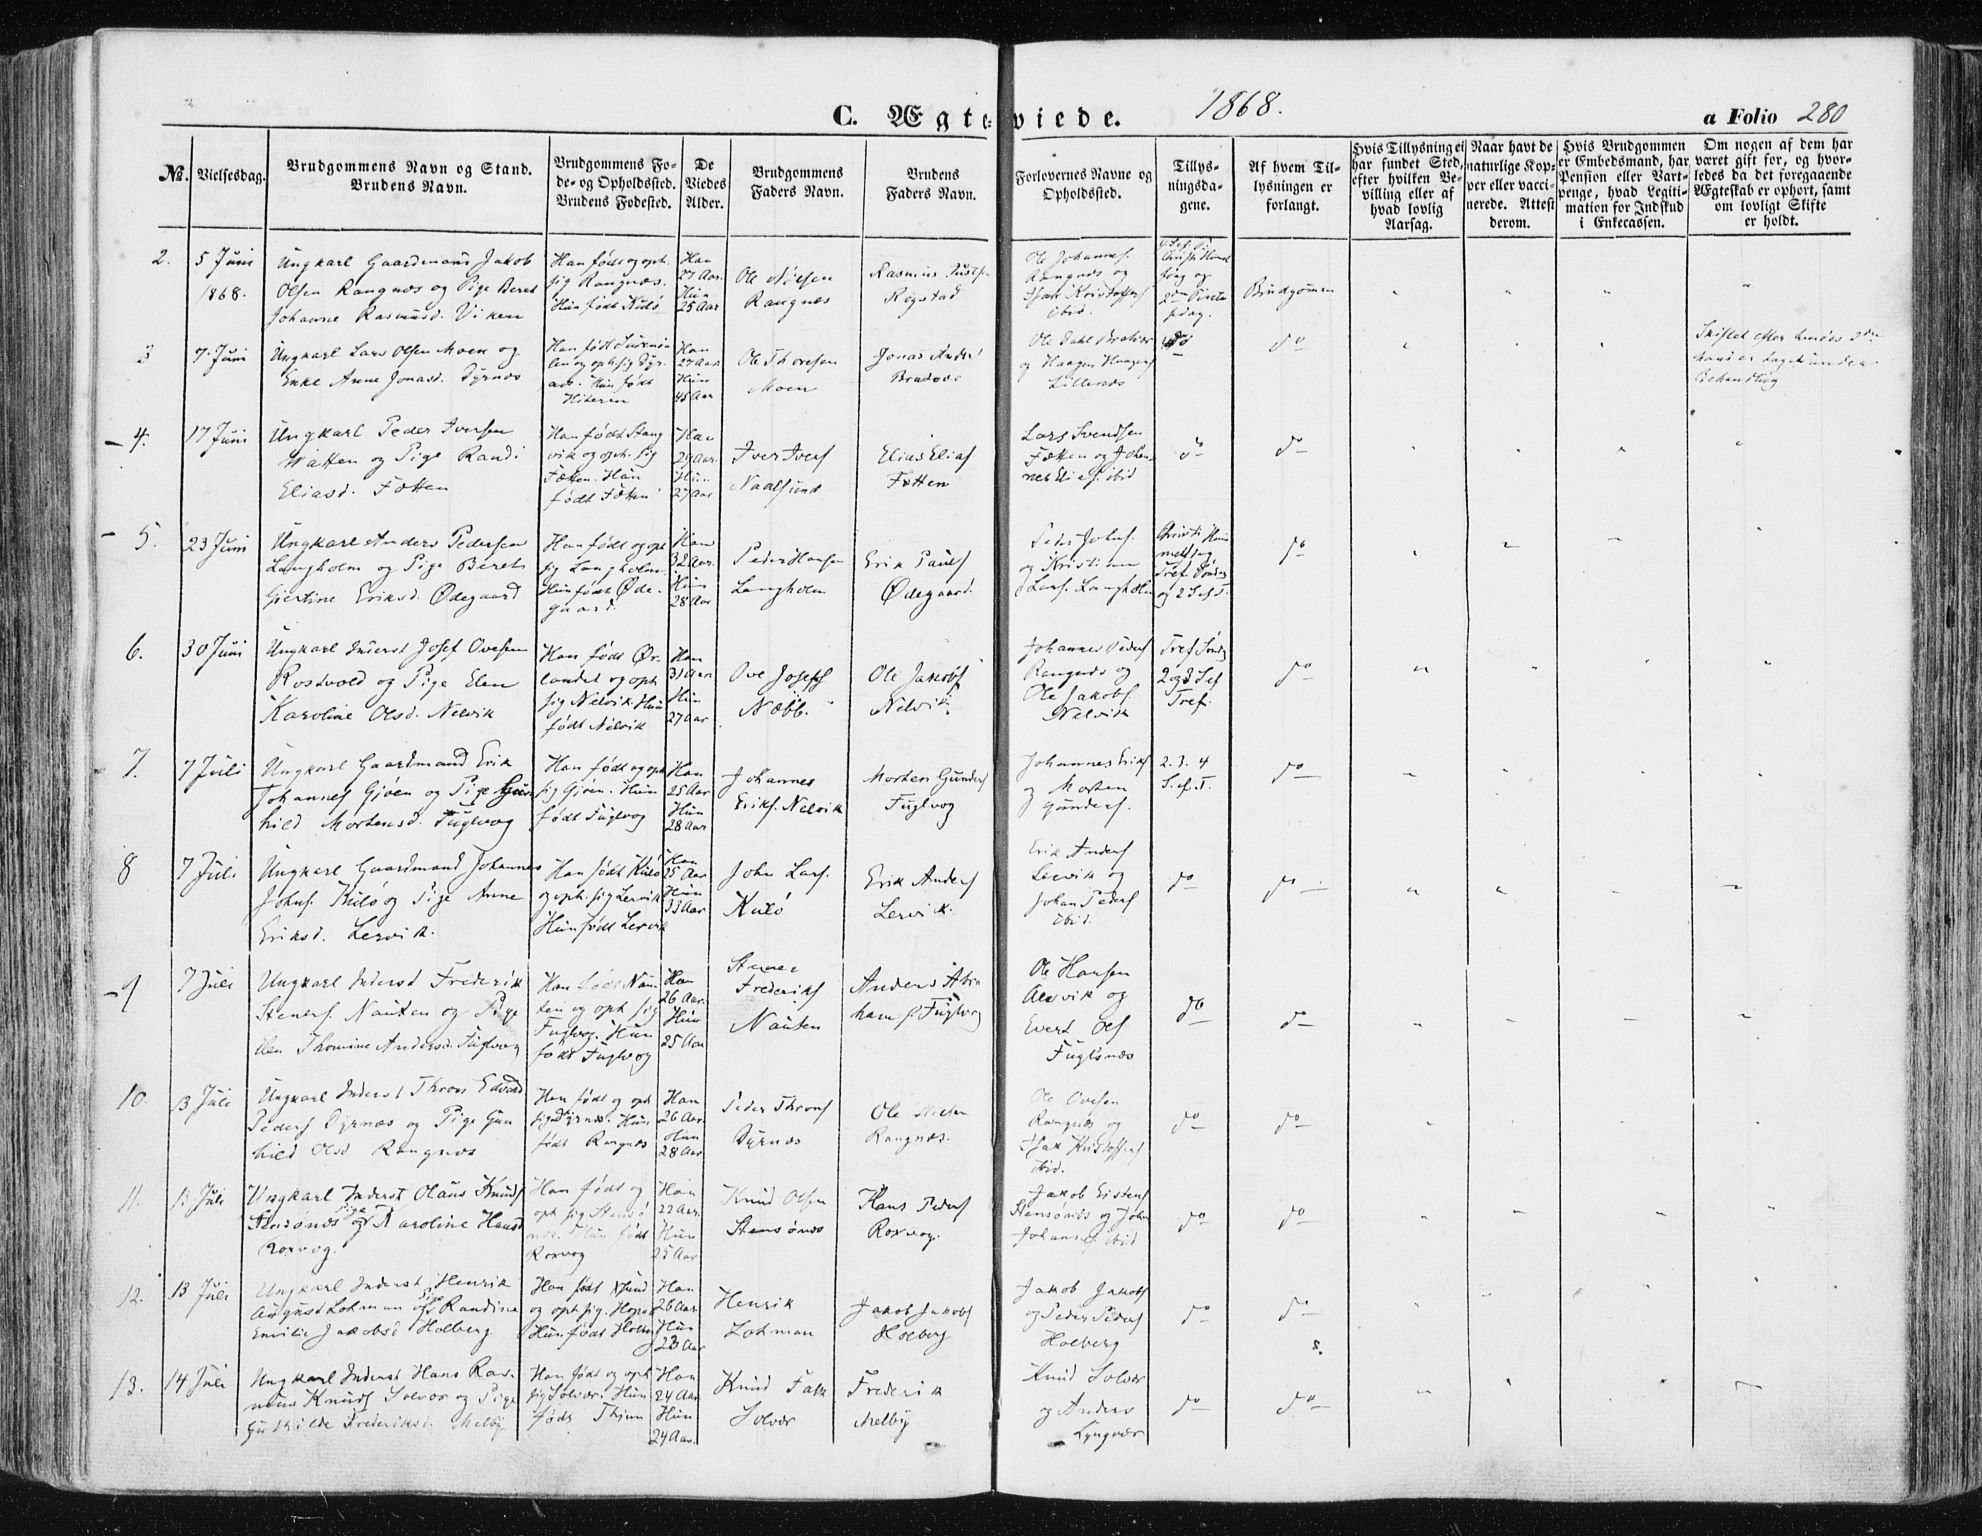 C. Ægteviede. 1868. a Folio 280
No. Vielsesdag. Brudgommens Navn og Stand. Brudens Navn. Brudgommens Fode- og Opholdssted. Brudens Fodested. De Viedes Alder. Brudgommens Faders Navn. Brudens Faders Navn. Forlovernes Navne og Opholdssted. Tillysningsdagene. Af hvem Tillysningen er forlangt. Hvis Tillysning ei har fundet Sted, efter hvilken Bevilling eller af hvad lovlig Aarsag. Naar havt de naturlige Kopper eller vaccinerede. Attest derom. Hvis Brudgommen er Embedsmand, har Pension eller Vartpenge, hvad Legitimation for Indskud i Enkecassen. Om nogen af dem har været gift for, og hvorledes da det foregaaende Ægteskab er ophort, samt om lovligt Skifte er holdt.
2. 5 Juni 1868.
Ungkarl Gaardmand Jakob
Olsen Rangnæs og Pige Beret
Johanne Rasmusd. Viken
Han født og oph.
sig Rangnæs.
Hun født Kulø
Han 27 Aar. Hun 25 Aar
Ole Nilsen
Rangnæs
Rasmus
Rogstad
Ole Johannes.
Rangnæs og
Isak Kristoffers.
ibid.
Brudgommen
3 7 Juni
Ungkarl Lars Olsen Moen og
Enke Anne Jonasd. Dyrnæs
Hun født
Hitteren
Han 27 Aar Hun 45 Aar
Ole Thoresen
Moen
Jonas
Ole Dahl
og Haagen Haagens.
Lillenæs
do
Skiftet efter hendes
Mand er taget under
Behandling
4. 17 Juni
Ungkarl Peder Iversen
Watten og Pige Randi
Eliasd. Fætten
Han født Stang
vik og oph. sig
Fætten. Hun
født Fætten
Han 29 Aar. Hun 27 Aar
Iver Ivers.
Naalsund
Elias Elias.
Fætten
Lars Svendsen
Fætten og Johan-
nes Elias. ibid
do do
5. 23 Juni
Ungkarl Anders Pedersen
Langholm og Pige Beret
Gjertine Eriksd. Ødegaard
Han født og oph
sig Langholm.
Hun født Øde-
gaard.
Han 32 Aar. Hun 28 Aar
Peder Hansen
Langholm
Erik Pauls.
Ødegaard.
Peder Johns.
og Kristian
Lars. Langholm
Christi Him
meldag
Tref. Søndag
og 2 S. ef. T.
do
6. 30 Juni
Ungkarl Inderst Josef Ovesen
Rostvold og Pige Elen
Karoline Olsd. Nelvik
Han født Ør-
landet og oph
sig Nelvik. Hun
født Nelvik
Han 31 Aar Hun 27 Aar
Ove Josefs.
Næbb.
Ole Jakobs.
Nelvik.
Johannes Peders.
Rangnæs og
Ole Jakobs.
Nelvik
Tref. Søndag
2 og 3 S. ef
Tref.
do
7. 7 Juli
Ungkarl Gaardmand Erik
Johannes Gjøen og Pige Gun
hild Mortensd. Fuglvog
Han født og oph
sig Gjøen. Hun
født Fuglvog
Han 25 Aar Hun 28 Aar
Johannes
Eriks. Nelvik
Morten Gunders.
Fuglvog
Johannes Eriks.
og Morten
Gunders.
2. 3. 4
S. ef. T.
do
8 7 Juli
Ungkarl Gaardmand Johannes
Johns. Kulø og Pige Anne
Eriksd. Lervik.
Han født Kulø
og oph. sig Lervik
Hun født Lervik
Han 25 Aar Hun 33 Aar
John Lars.
Kulø
Erik Anders.
Lervik.
Erik Anders.
Lervik og
Johan Peders.
ibid.
do do
9 7 Juli
Ungkarl Inderst Frederik
Steners. Nausten og Pige
Elen Thomine Andersd. Fuglvog
Han født Naus
ten og oph sig
Fuglvog. Hun
født Fuglvog
Han 26 Aar. Hun 25 Aar
Stener
Frederiks.
Nausten
Anders Abra
hams. Fuglvog
Ole Hansen
Alevik og
Evert Ols.
Fuglsnæs
do do
10. 13 Juli
Ungkarl Inderst Thron Edvard
Peders. Dyrnæs og Pige Gun
hild Olsd. Rangnæs
Han født og oph
sig Dyrnæs. Hun
født Rangnæs
Han 26 Aar. Hun 28 Aar.
Peder Throns.
Dyrnæs
Ole Nilsen
Rangnæs.
Ole Ovesen
Rangnæs og
Isak Kristoffers.
ibid.
do do
11. 13 Juli
Ungkarl Inderst Olaus Knuds.
Stensønæs og Pige Karoline Hansd
Roxvog.
Han født og
oph sig Stensø
næs. Hun født
Roxvog
Han 22 Aar. Hun 25 Aar
Knud Olsen
Stensønæs
Hans Peders.
Roxvog.
Jakob Eistens.
Stensønæs og John
Johans. ibid
do do
12. 13 Juli
Ungkarl Inderst Henrik
August Lohman og Pige Randine
Emilie Jakobsd Holberg
Han født Xsund
og oph sig. Hopen
Hun født Holberg
Han 26 Aar Hun 23 Aar
Henrik
Lohman
Jakob Jakobs.
Holberg
Jakob Jakobs.
og Peder Peders.
Holberg
do do
s.
13. 14 Juli
Ungkarl Inderst Hans Ras-
mus Knuds. Solvær og Pige
Guthilde Frederiksd. Melby
Han født og oph
sig Solvær. Hun
født Thjem
Han 24 Aar. Hun 24 Aar.
Knud Falk
Solvær
Frederik
Melby
Knud Solvær
og Anders
Lyngvær
do do